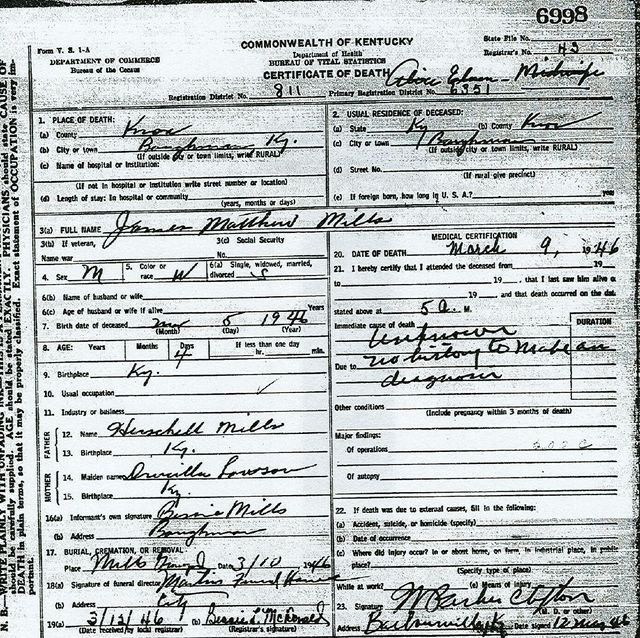 6998
Form V. S. 1-A
COMMONWEALTH OF KENTUCKY
State File No.
DEPARTMENT OF COMMERCE
Bureau of the Census
Department of Health
BUREAU OF VITAL STATISTICS
Registrar's No. 43
CERTIFICATE OF DEATH
Midwife
Registration District No. 811 Primary Registration District No. 6351
1. PLACE OF DEATH:
(a) County Knox
(b) City or town Baughman Ky.
(If outside city or town limits, write RURAL)
(c) Name of hospital or institution:
(If not in hospital or institution write street number or location)
(d) Length of stay: In hospital or community
(years, months or days)
2. USUAL RESIDENCE OF DECEASED:
(a) State Ky (b) County Knox
(c) City or town Baughman
(If outside city or town limits, write RURAL)
(d) Street No.
(If rural give precinct)
(e) If foreign born, how long in U. S. A.? years
3(a) FULL NAME James Matthew Mills
3(b) If veteran, Name war
3(c) Social Security No.
4. Sex M
5. Color or race W
6(a) Single, widowed, married, divorced S
6(b) Name of husband or wife
6(c) Age of husband or wife if alive Years
7. Birth date of deceased Mar 5 1946
(Month) (Day) (Year)
8. AGE: Years Months Days 4 If less than one day hr. min.
9. Birthplace Ky.
10. Usual occupation
11. Industry or business
FATHER
12. Name Herschell Mills
13. Birthplace Ky.
MOTHER
14. Maiden name Drucilla Lawson
15. Birthplace Ky
16(a) Informant's own signature Bessie Mills
(b) Address Baughman
17. BURIAL, CREMATION, OR REMOVAL
Place Mills Date 3/10 1946
18(a) Signature of funeral director Martins Funeral Home
(b) Address City
19(a) 3/12/46 (b) Bessie L. McDonald
(Date received by local registrar) (Registrar's signature)
MEDICAL CERTIFICATION
20. DATE OF DEATH March 9, 1946
21. I hereby certify that I attended the deceased from 19
to 19 , that I last saw him alive o
19 , and that death occurred on the date
stated above at 5 a. M.
Immediate cause of death
DURATION
Unknown
Due to no history to make an
diagnosis
Other conditions
(Include pregnancy within 3 months of death)
Major findings:
Of operations
Of autopsy
22. If death was due to external causes, fill in the following:
(a) Accident, suicide, or homicide (specify)
(b) Date of occurrence
(c) Where did injury occur? in or about home, on farm, in industrial place, in public
place?
(Specify type of place)
While at work? (e) Means of injury
23. Signature W Parker Clifton
(M. D. or other)
Address Barbourville Ky Date signed 12 Mar 46
N. B.—WRITE PLAINLY, WITH UNFADING INK
should be carefully supplied. AGE should be stated EXACTLY. PHYSICIANS should state CAUSE OF
DEATH in plain terms, so that it may be properly classified. Exact statement of OCCUPATION is very im-
portant.